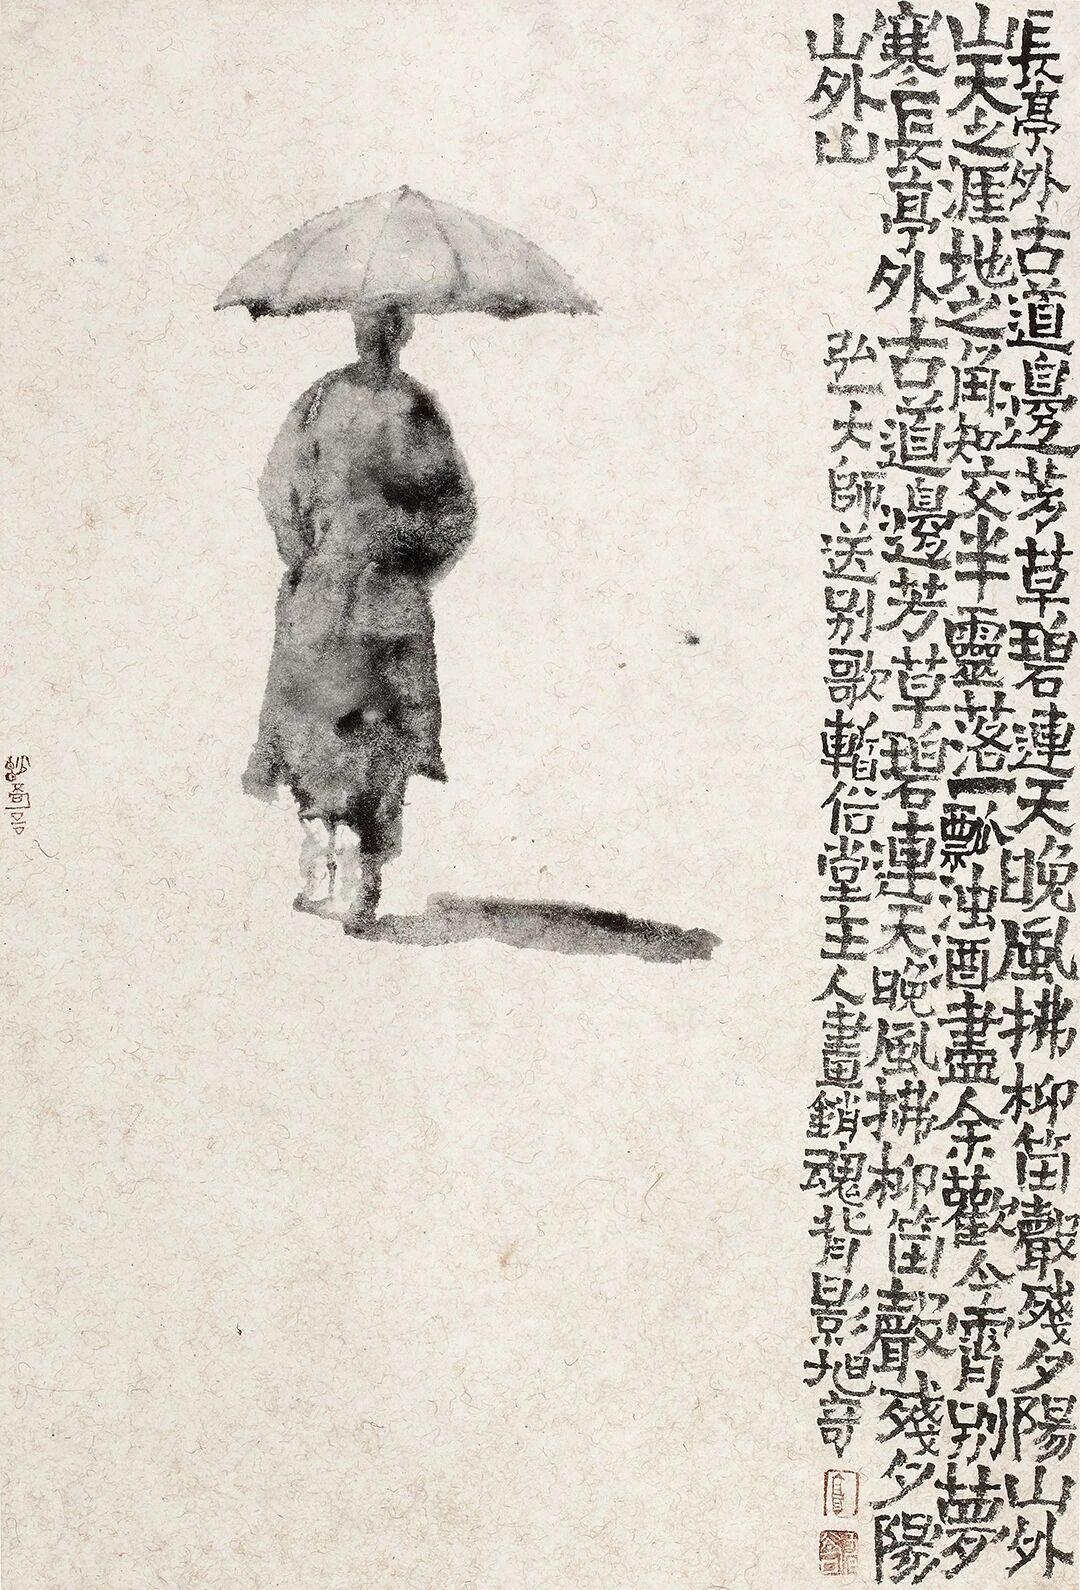 長亭外古道邊芳草碧連天晚風拂柳笛聲殘夕陽山外
山天之涯地之角知交半靈落一瓢浊酒盡余歡今霄别夢
寒長亭外古道邊芳草碧連天晚風拂柳笛聲殘夕陽
山外山
弘一大師送别歌暫借堂主人畫銷魂背影旭奇